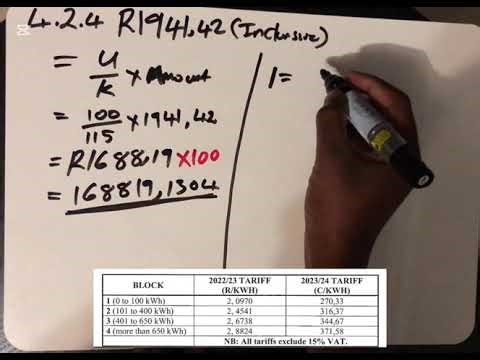 4.2.4 R1941,42 (Inclusive)
= U/K × Amount
= 100/115 × 1941,42
= R1688,19 ×100
= 168819,1304
1=
BLOCK 2022/23 TARIFF (R/KWH) 2023/24 TARIFF (C/KWH)
1 (0 to 100 kWh) 2, 0970 270,33
2 (101 to 400 kWh) 2, 4541 316,37
3 (401 to 650 kWh) 2, 6738 344,67
4 (more than 650 kWh) 2, 8824 371,58
NB: All tariffs exclude 15% VAT.